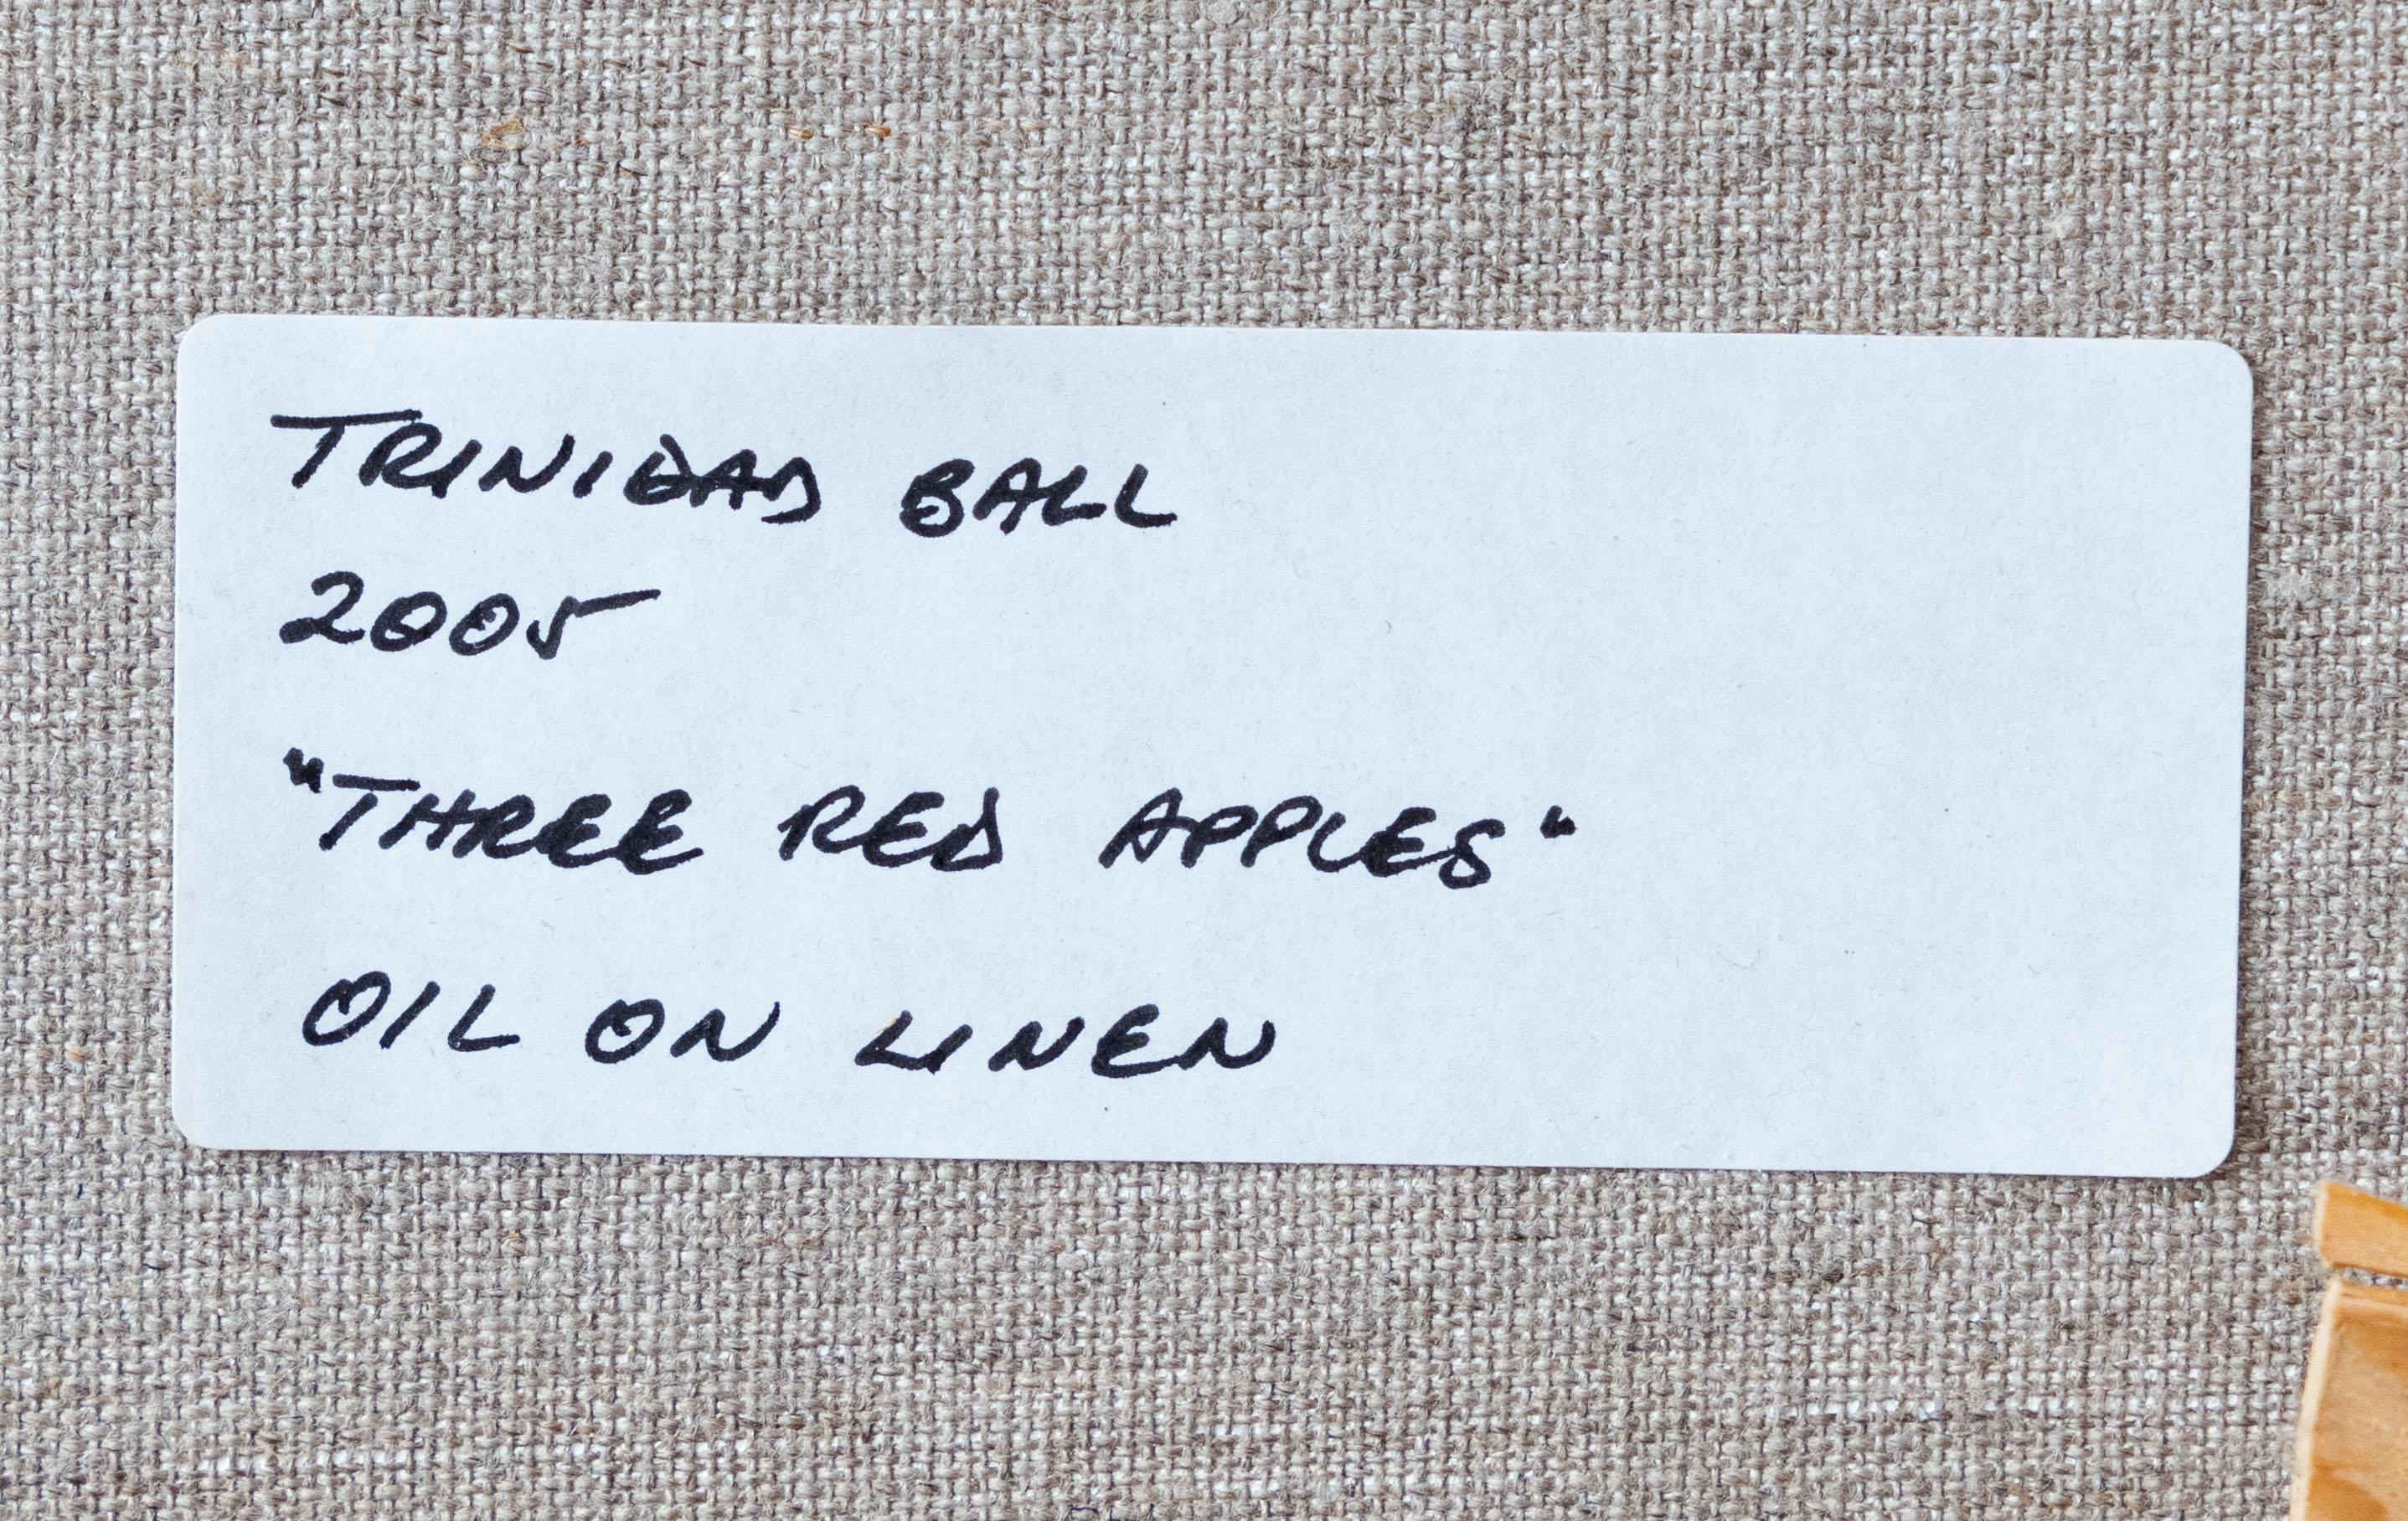 TRINIDAD BALL
2005
"THREE RED APPLES"
OIL ON LINEN